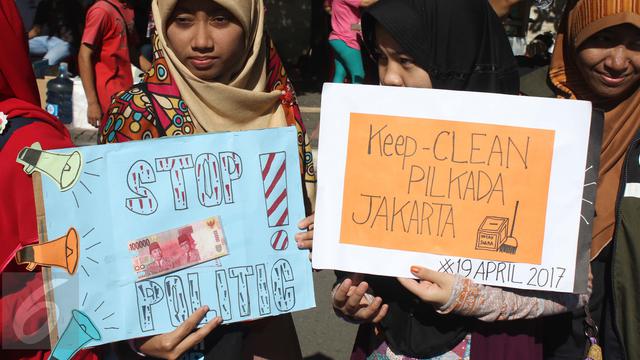 STOP!
100000
POLITIC
Keep-CLEAN
PILKADA
JAKARTA
#19 APRIL 2017